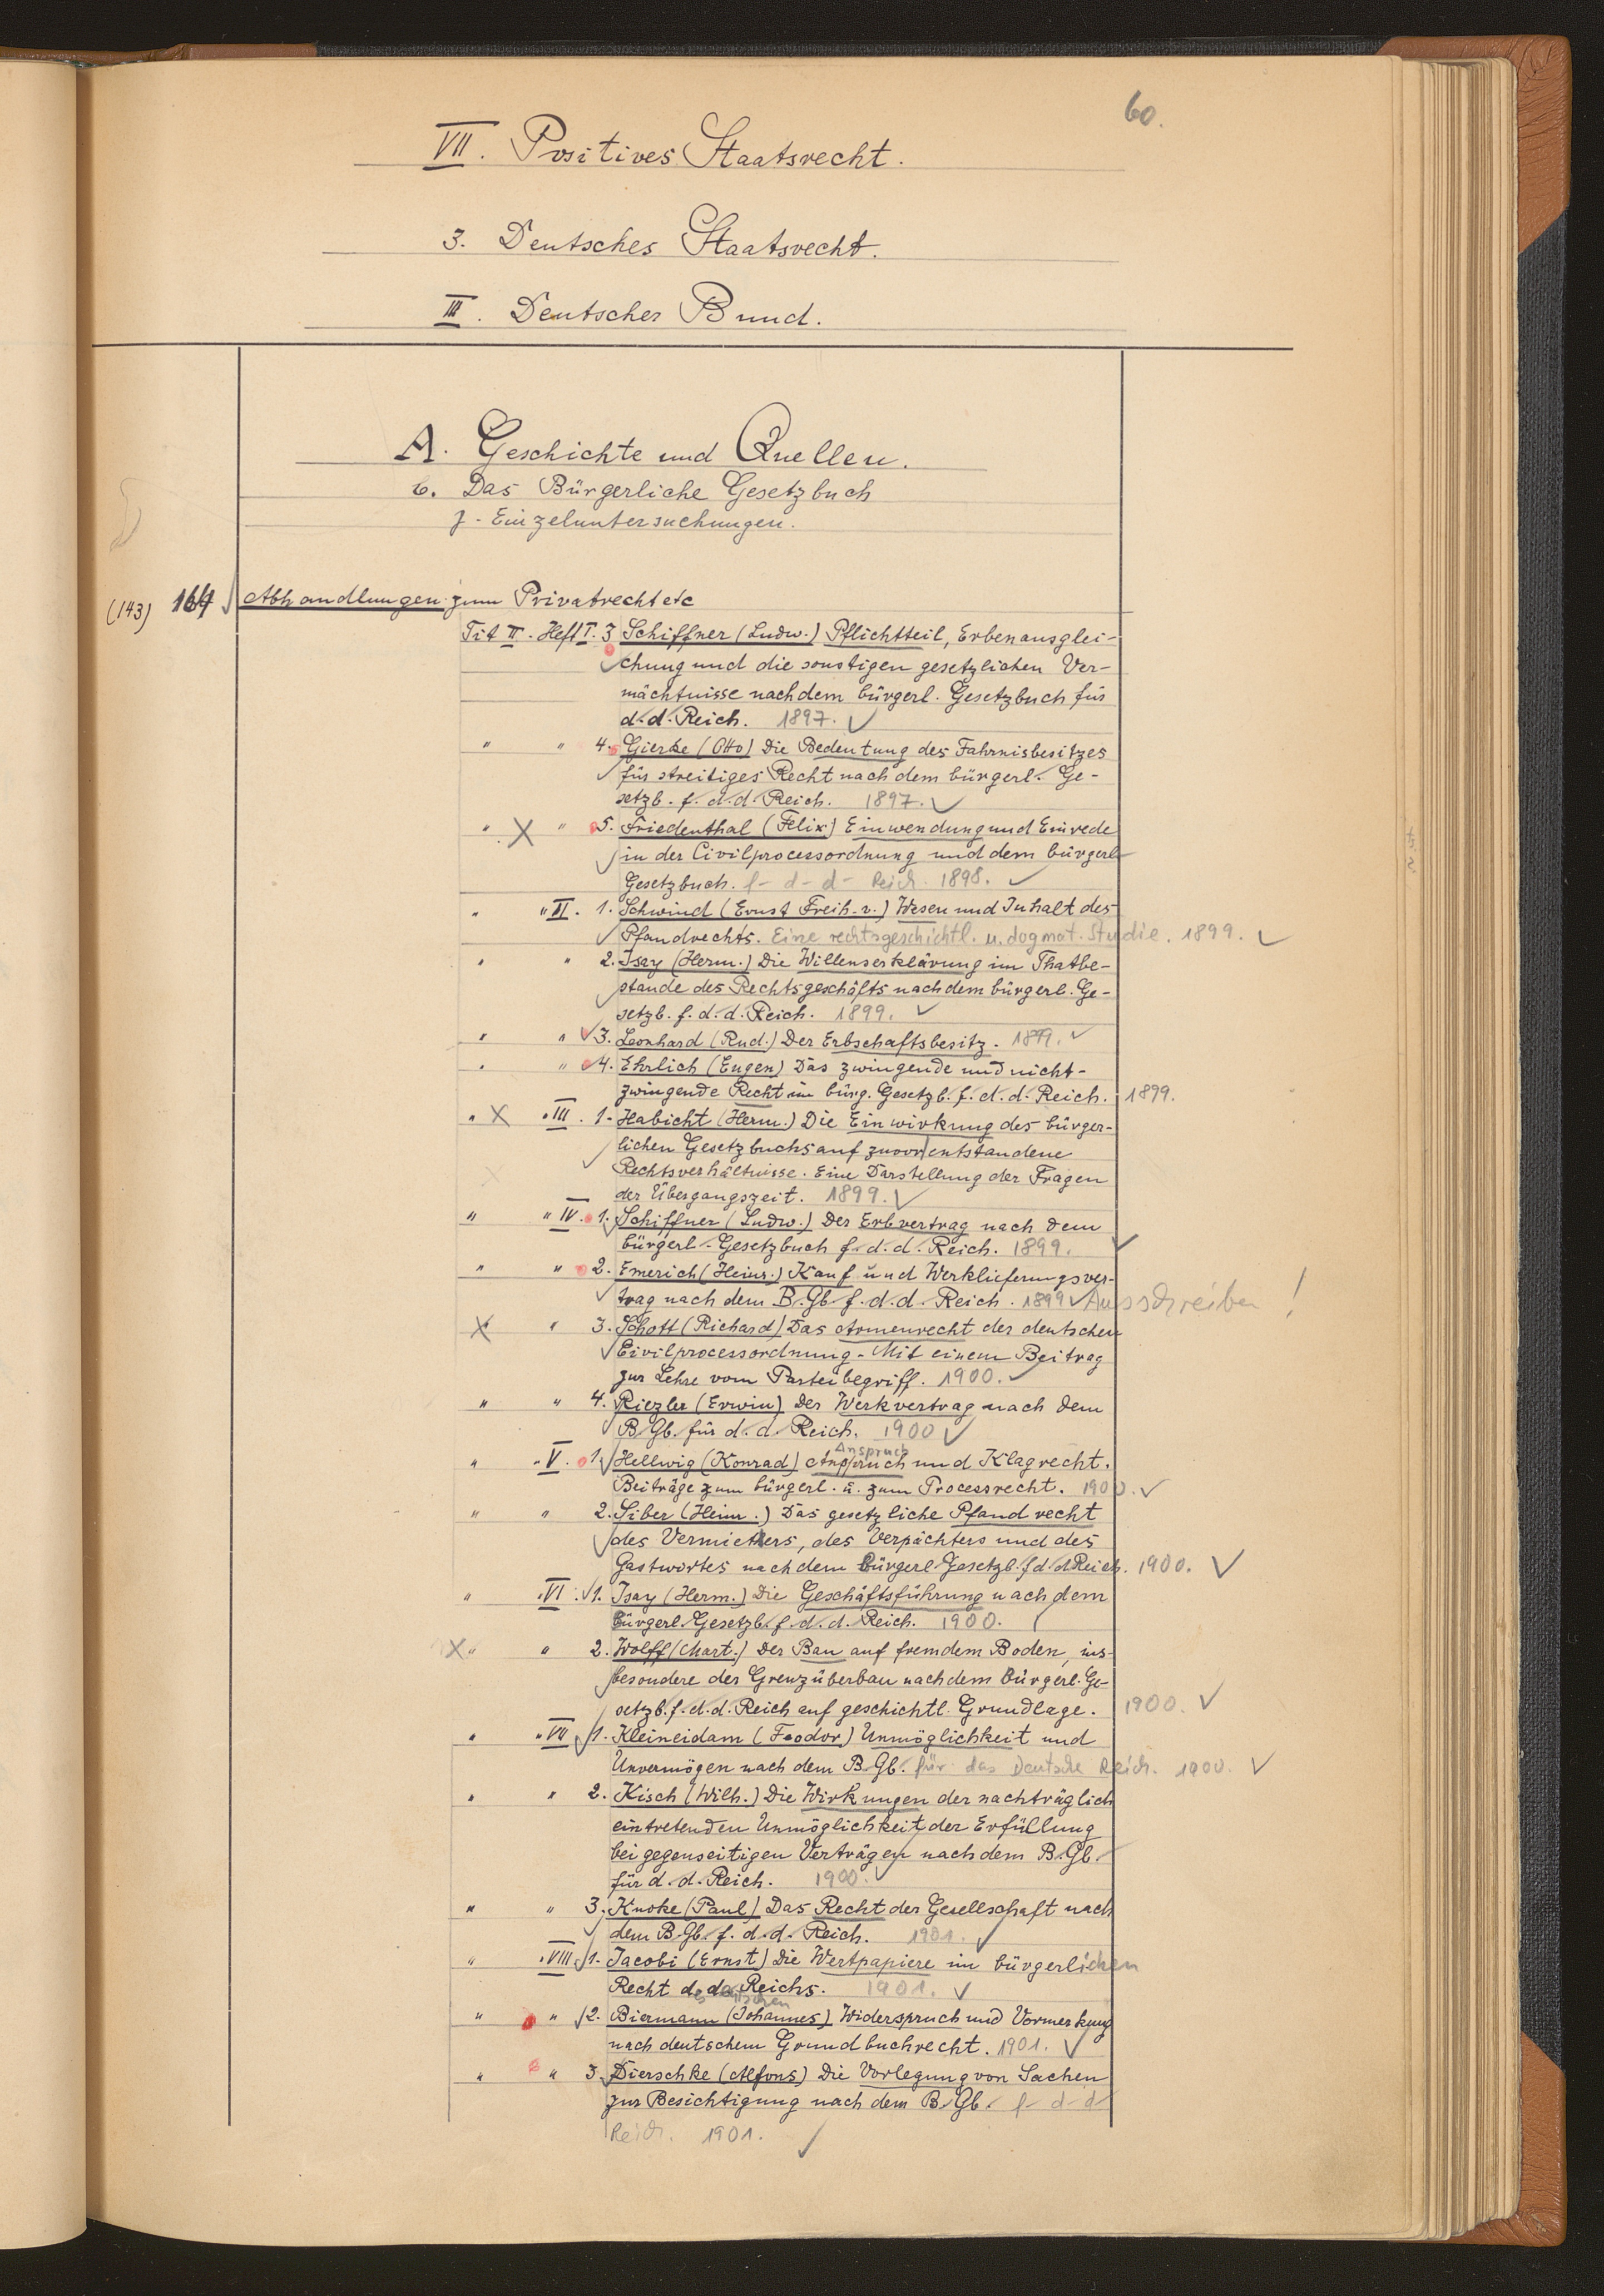 60.
VII. Positives Staatsrecht.
3. Deutsches Staatsrecht.
III. Deutscher Bund.
A. Geschichte und Quellen.
b. Das Bürgerliche Gesetzbuch
J. Einzeluntersuchungen.
(143) 164 Abhandlungen zum Privatrecht etc
Tit II. Heft I. 3 Schiffner (Ludw.) Pflichtteil, Erbenausglei-
chung und die sonstigen gesetzlichen Ver-
mächtnisse nach dem bürgerl. Gesetzbuch für
d. d. Reich. 1897. ✓
" " 4. Gierke (Otto) Die Bedeutung des Fahrnisbesitzes
für streitiges Recht nach dem bürgerl. Ge-
setzb. f. d. d. Reich. 1897. ✓
" X " 5. Friedenthal (Felix) Einwendung und Einrede
in der Civilprocessordnung und dem bürgerl
Gesetzbuch. f- d- d- Reich. 1898. ✓
" " II. 1. Schwind (Ernst Freih. v.) Wesen und Inhalt des
Pfandrechts. Eine rechtsgeschichtl. u. dogmat. Studie. 1899. ✓
" " 2. Isay (Herm.) Die Willenserklärung im Thatbe-
stande des Rechtsgeschäfts nach dem bürgerl. Ge-
setzb. f. d. d. Reich. 1899. ✓
" " ✓ 3. Leonhard (Rud.) Der Erbschaftsbesitz. 1899. ✓
" " 4. Ehrlich (Eugen) Das zwingende und nicht-
zwingende Recht im bürg. Gesetzb. f. d. d. Reich. 1899.
" X " III. 1. Habicht (Herm.) Die Einwirkung des bürger-
lichen Gesetzbuchs auf zuvor entstandene
Rechtsverhältnisse. Eine Darstellung der Fragen
der Übergangszeit. 1899. ✓
" " IV. 1. Schiffner (Ludw.) Der Erbvertrag nach dem
bürgerl. Gesetzbuch f. d. d. Reich. 1899. ✓
" " 2. Emerich (Heinr.) Kauf und Werklieferungsver-
trag nach dem B. Gb. f. d. d. Reich. 1899 ✓ Ausschreiben !
X " 3. Schott (Richard) Das Armenrecht der deutschen
Civilprocessordnung. Mit einem Beitrag
zur Lehre vom Parteibegriff. 1900. ✓
" " 4. Riezler (Erwin) Der Werkvertrag nach dem
B. Gb. für d. d. Reich. 1900 ✓
Anspruch
" " V. 1. Hellwig (Konrad) Anspruch und Klagrecht.
Beiträge zum bürgerl. u. zum Processrecht. 1900. ✓
" " 2. Siber (Heinr.) Das gesetzliche Pfandrecht
des Vermieters, des Verpächters und des
Gastwirtes nach dem Bürgerl. Gesetzb. f. d. d. Reich. 1900. ✓
" " VI. ✓ 1. Isay (Herm.) Die Geschäftsführung nach dem
Bürgerl. Gesetzb. f. d. d. Reich. 1900.
X " " 2. Wolff (Mart.) Der Bau auf fremdem Boden, ins-
besondere der Grenzüberbau nach dem Bürgerl. Ge-
setzb. f. d. d. Reich auf geschichtl. Grundlage. 1900. ✓
" " VII ✓ 1. Kleineidam (Feodor) Unmöglichkeit und
Unvermögen nach dem B. Gb. für das Deutsche Reich. 1900. ✓
" " 2. Kisch (Wilh.) Die Wirkungen der nachträglich
eintretenden Unmöglichkeit der Erfüllung
bei gegenseitigen Verträgen nach dem B. Gb.
für d. d. Reich. 1900. ✓
" " 3. Knoke (Paul) Das Recht der Gesellschaft nach
dem B. Gb. f. d. d. Reich. 1901. ✓
" " VIII. ✓ 1. Jacobi (Ernst) Die Wertpapiere im bürgerlichen
Recht des deutschen Reichs. 1901. ✓
" " ✓ 2. Biermann (Johannes) Widerspruch und Vormerkung
nach deutschem Grundbuchrecht. 1901. ✓
" " 3. Dierschke (Alfons) Die Vorlegung von Sachen
zur Besichtigung nach dem B. Gb. f- d- d-
Reich. 1901. ✓